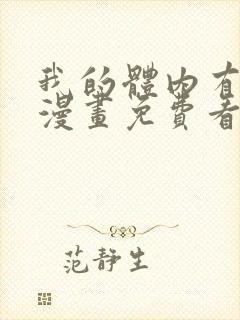 我的體内有
漫畫免費看
范静生